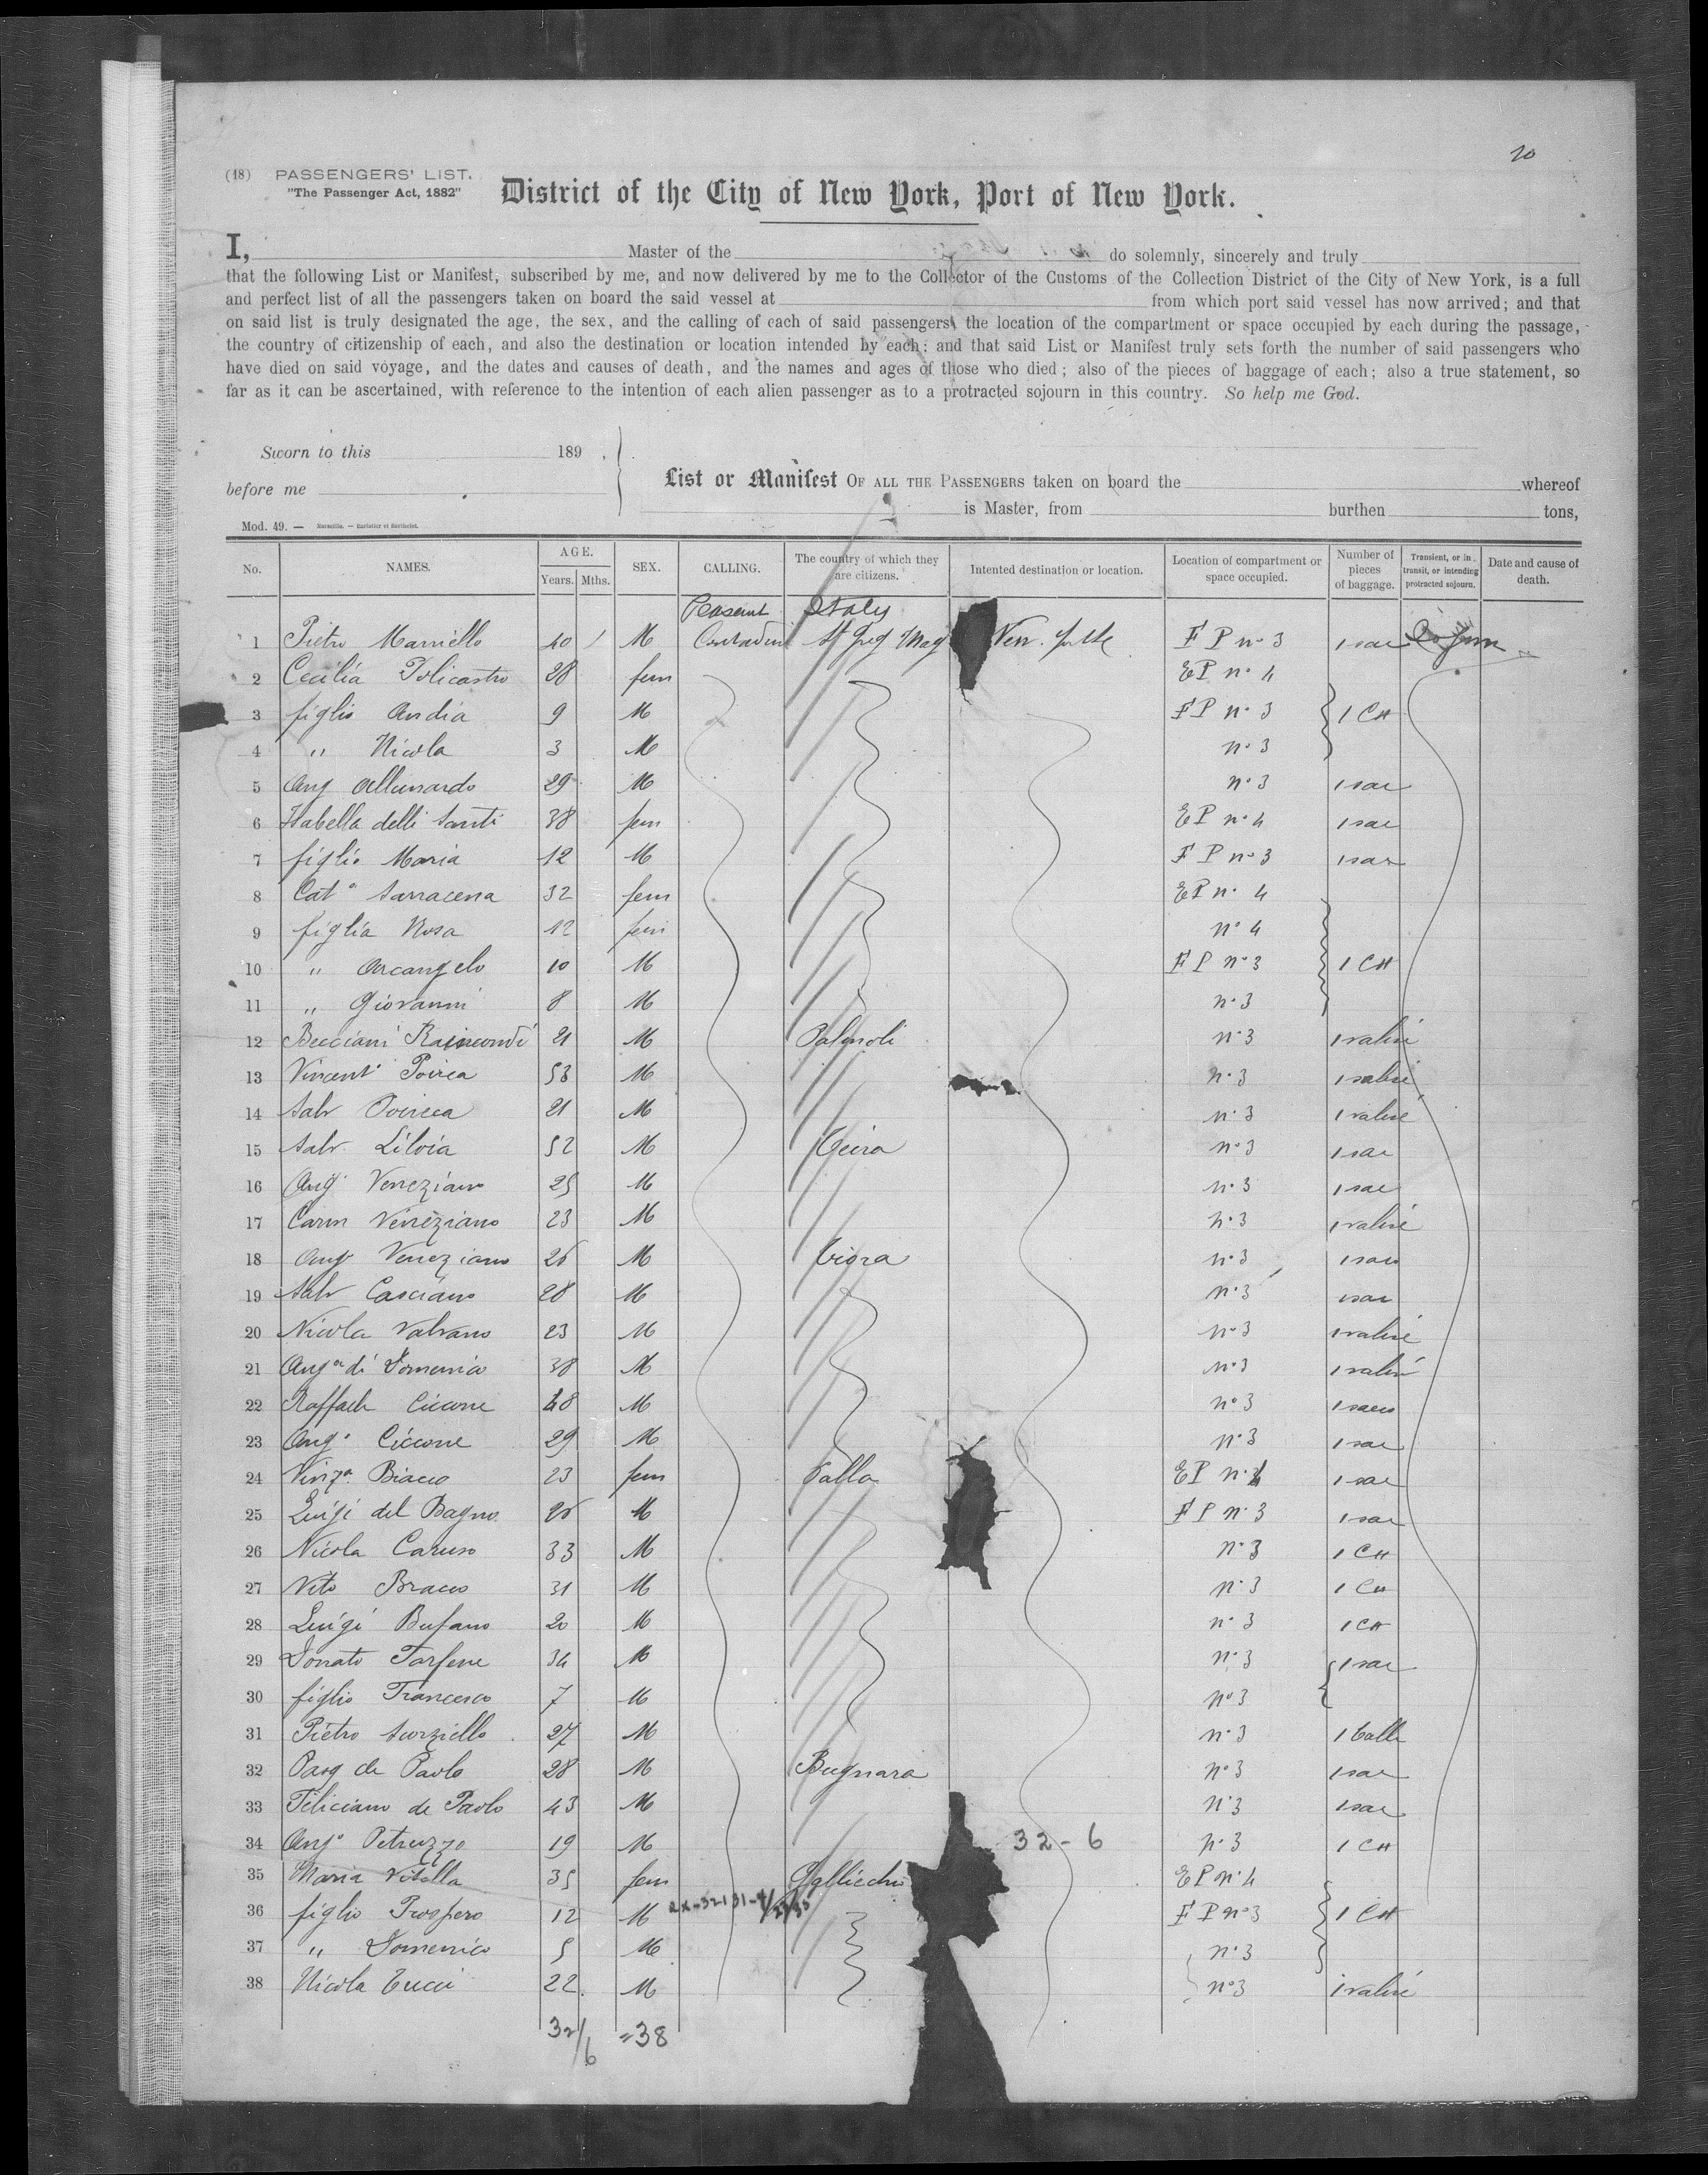 20
(18) PASSENGERS' LIST.
"The Passenger Act, 1882"
District of the City of New York, Port of New York.
I, Master of the do solemnly, sincerely and truly
that the following List or Manifest, subscribed by me, and now delivered by me to the Collector of the Customs of the Collection District of the City of New York, is a full
and perfect list of all the passengers taken on board the said vessel at from which port said vessel has now arrived; and that
on said list is truly designated the age, the sex, and the calling of each of said passengers, the location of the compartment or space occupied by each during the passage,
the country of citizenship of each, and also the destination or location intended by each; and that said List or Manifest truly sets forth the number of said passengers who
have died on said voyage, and the dates and causes of death, and the names and ages of those who died; also of the pieces of baggage of each; also a true statement, so
far as it can be ascertained, with reference to the intention of each alien passenger as to a protracted sojourn in this country. So help me God.
Sworn to this 189
before me
List or Manifest OF ALL THE PASSENGERS taken on board the whereof
is Master, from burthen tons,
Mod. 49. — Marseille. — Barlatier et Barthelet.
No. NAMES. AGE. Years. Mths. SEX. CALLING. The country of which they are citizens. Intented destination or location. Location of compartment or space occupied. Number of pieces of baggage. Transient, or in transit, or intending protracted sojourn. Date and cause of death.
Peasant Italy
1 Pietro Marniello 40 M Contadini St Greg Mag New F P n° 3 1 sac
2 Cecilia Policastro 28 fem EP n° 4
3 figlio Andia 9 M FP n° 3 1 CH
4 " Nicola 3 M n° 3
5 Ang 29 M n° 3 1 sac
6 Isabella delli Santi 38 fem EP n° 4 1 sac
7 figlio Maria 12 M F P n° 3 1 sac
8 Cat° Sarracena 32 fem EP n° 4
9 figlia Rosa 12 fem n° 4
10 " Arcangelo 10 M F P n° 3 1 CH
11 " Giovanni 8 M n° 3
12 Becciani Raimondi 21 M Palmoli n° 3 1 valise
13 Vincent° 53 M n° 3 1 valise
14 Salv 21 M n° 3 1 valise
15 Salv Silvia 52 M n° 3 1 sac
16 Ang° Veneziano 25 M n° 3 1 sac
17 Carm Veneziano 23 M n° 3 1 valise
18 Ang° Veneziano 26 M n° 3 1 sac
19 Salv Casciano 28 M n° 3 1 sac
20 Nicola Valvano 23 M n° 3 1 valise
21 Ang° di Domenico 38 M n° 3 1 valise
22 Raffaele Ciccone 48 M n° 3 1 sac
23 Ang° Ciccone 29 M n° 3 1 sac
24 Vinzª Bracco 23 fem EP n° 4 1 sac
25 Luigi del Bagno 26 M F P n° 3 1 sac
26 Nicola Caruso 33 M n° 3 1 CH
27 Vito Bracco 31 M n° 3 1 CH
28 Luigi Bufano 20 M n° 3 1 CH
29 Donato 34 M n° 3 1 sac
30 figlio Francesco 7 M n° 3
31 Pietro Scorziello 27 M n° 3 1 balle
32 Pasq de Paolo 28 M Bugnara n° 3 1 sac
33 Feliciano de Paolo 43 M n° 3 1 sac
34 Ang° Petruzzo 19 M 32-6 n° 3 1 CH
35 Maria Vitella 35 fem Gallicchio EP n° 4
36 figlio Prospero 12 M F P n° 3 1 CH
37 " Domenico 5 M n° 3
38 Nicola Tucci 22 M n° 3 1 valise
32/6 =38